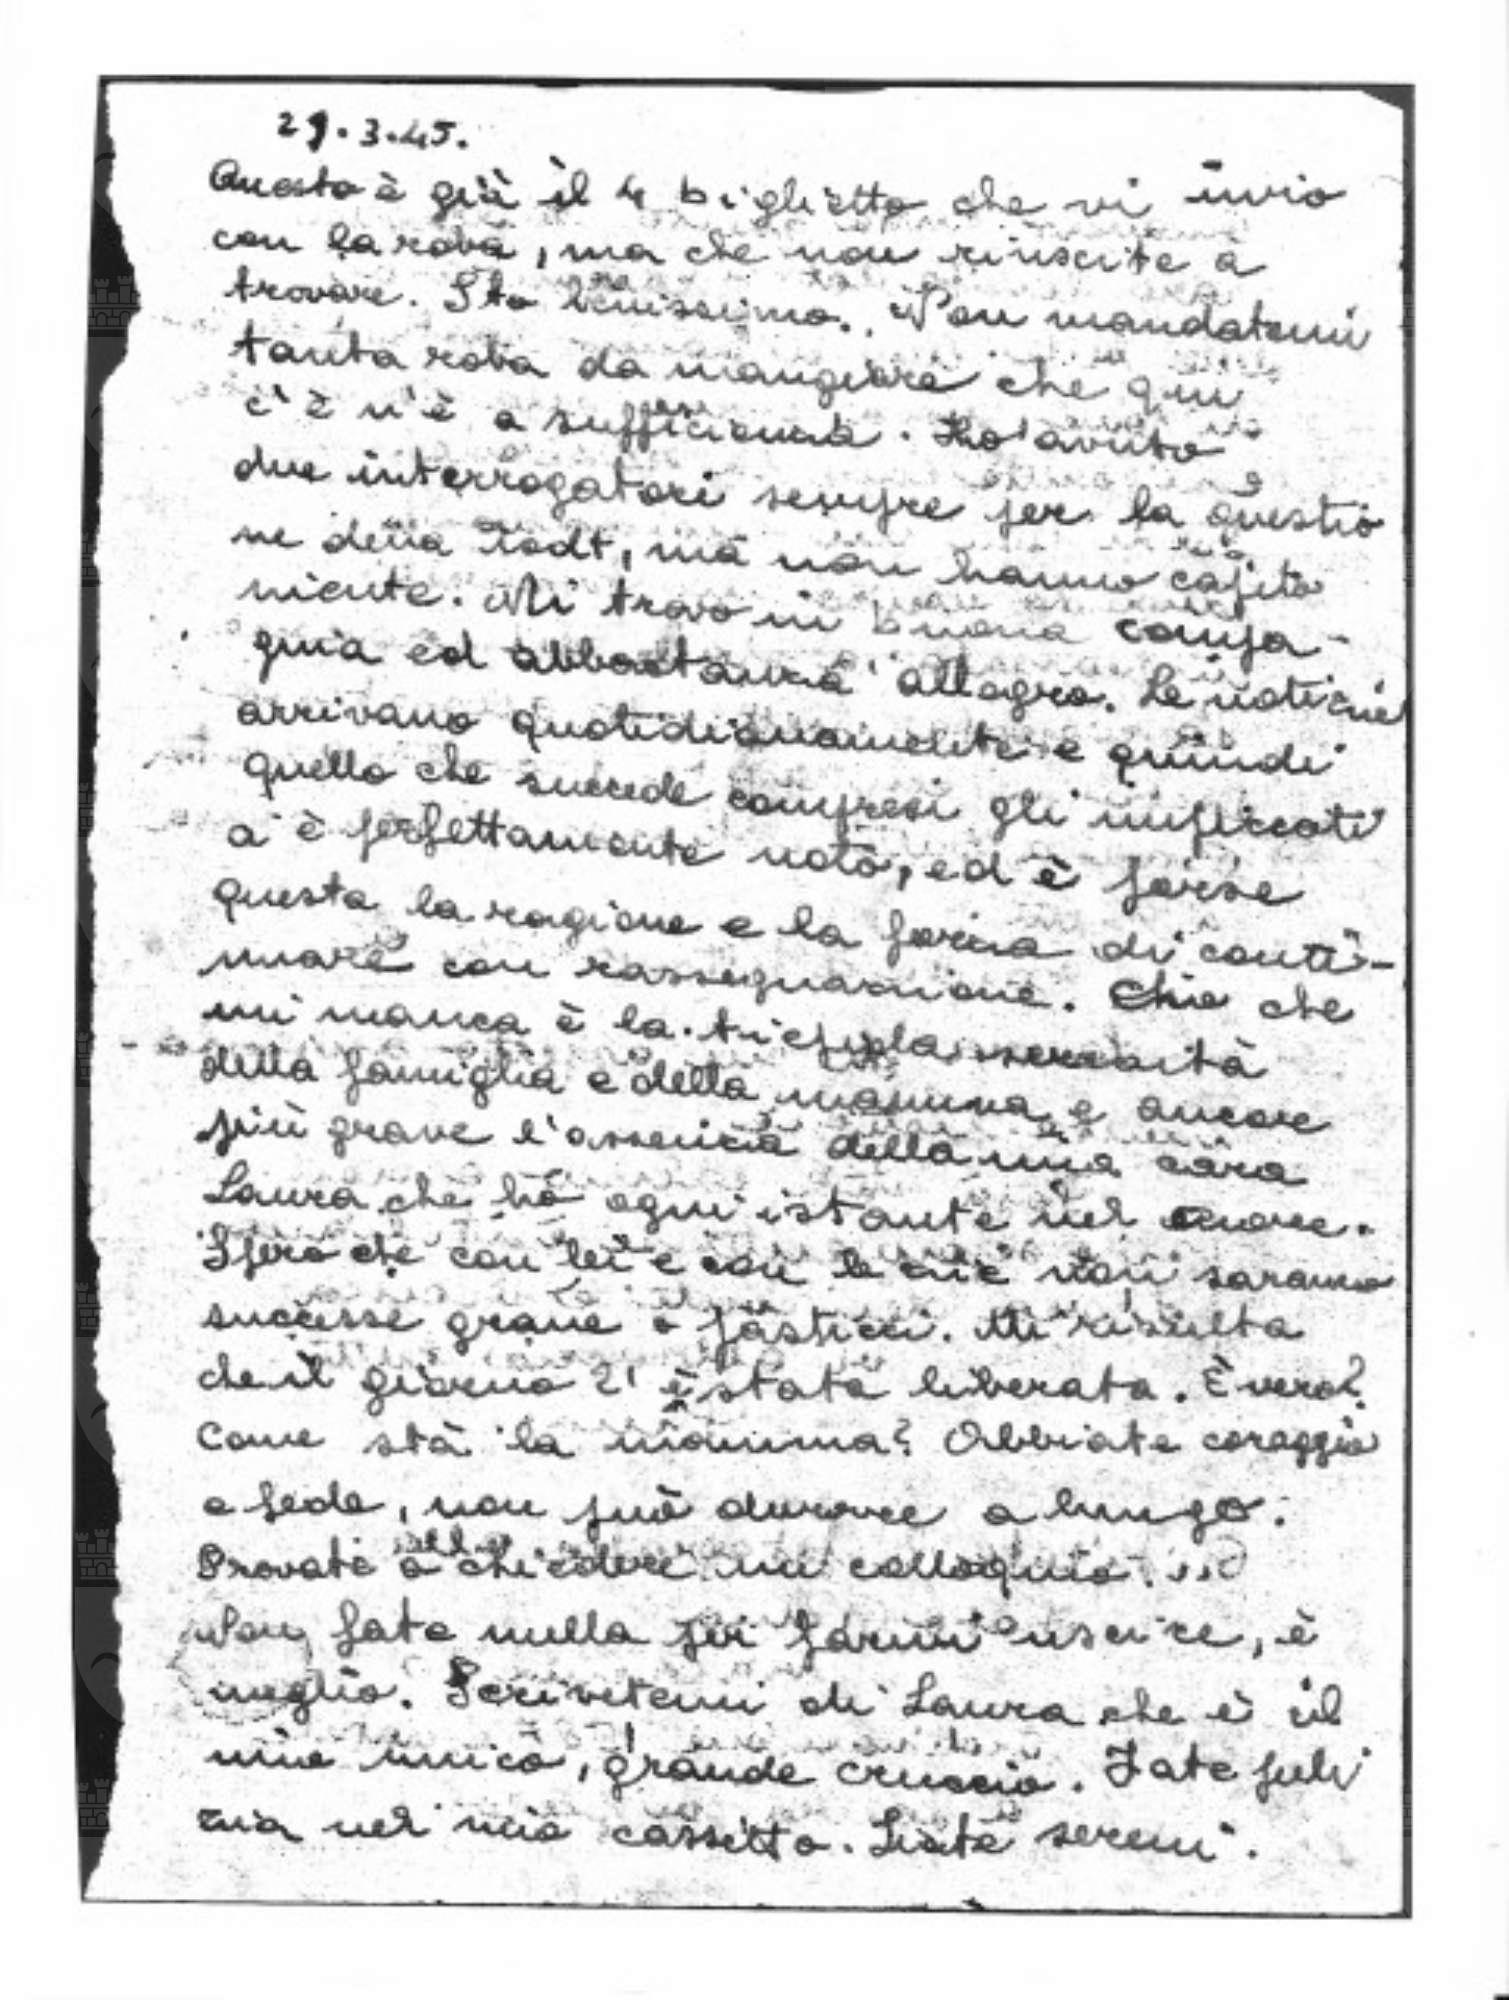 29.3.45.
Questo è già il 4 biglietto che vi invio
con la roba, ma che non riuscite a
trovare. Sto benissimo. Non mandatemi
tanta roba da mangiare che qui
c'è n'è a sufficienza. Ho avuto
due interrogatori sempre per la questio
ne della Todt, ma non hanno capito
niente. Mi trovo in buona compa-
gnia ed abbastanza allegro. Le notizie
arrivano quotidianamente e quindi
quello che succede compresi gli impiccati
ci è perfettamente noto, ed è forse
questa la ragione e la forza di conti-
nuare con rassegnazione. Chio che
mi manca è la serenità
della famiglia e della mamma e ancore
più grave l'assenza della mia cara
Laura che ho ogni istante nel cuore.
Spero che con lei e con le zie non saranno
successe grane o pasticci. Mi risulta
che il giorno 21 è stata liberata. È vero?
Come stà la mamma? Abbiate coraggio
e fede, non può durare a lungo.
Provate a chiedere un colloquio.
Non fate nulla per farmi uscire, è
meglio. Scrivetemi di Laura che è il
mio unico, grande cruccio. Fate puli
zia nel mio cassetto. Siate sereni.